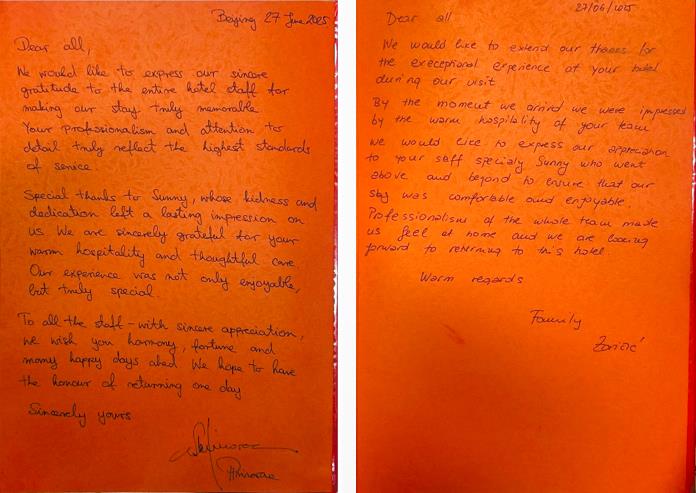 Beijing 27 June 2025
Dear all,
We would like to express our sincere
gratitude to the entire hotel staff for
making our stay truly memorable
Your professionalism and attention to
detail truly reflect the highest standards
of service.
Special thanks to Sunny, whose kidness and
dedication left a lasting impression on
us. We are sincerely grateful for your
warm hospitality and thoughtful care
Our experience was not only enjoyable,
but truly special.
To all the staff - with sincere appreciation,
we wish you harmony, fortune and
many happy days ahed. We hope to have
the honour of returning one day
Sincerely yours
27/06/2025
Dear all
We would like to extend our thanks for
the execeptional experience at your hotel
during our visit
By the moment we arrived we were impressed
by the warm hospility of your team
We would like to express our appreciation
to your staff specialy Sunny who went
above and beyond to ensure that our
stay was comfortable and enjoyable.
Professionalism of the whole team made
us feel at home and we are looking
forward to returning to this hotel
Warm regards
Family